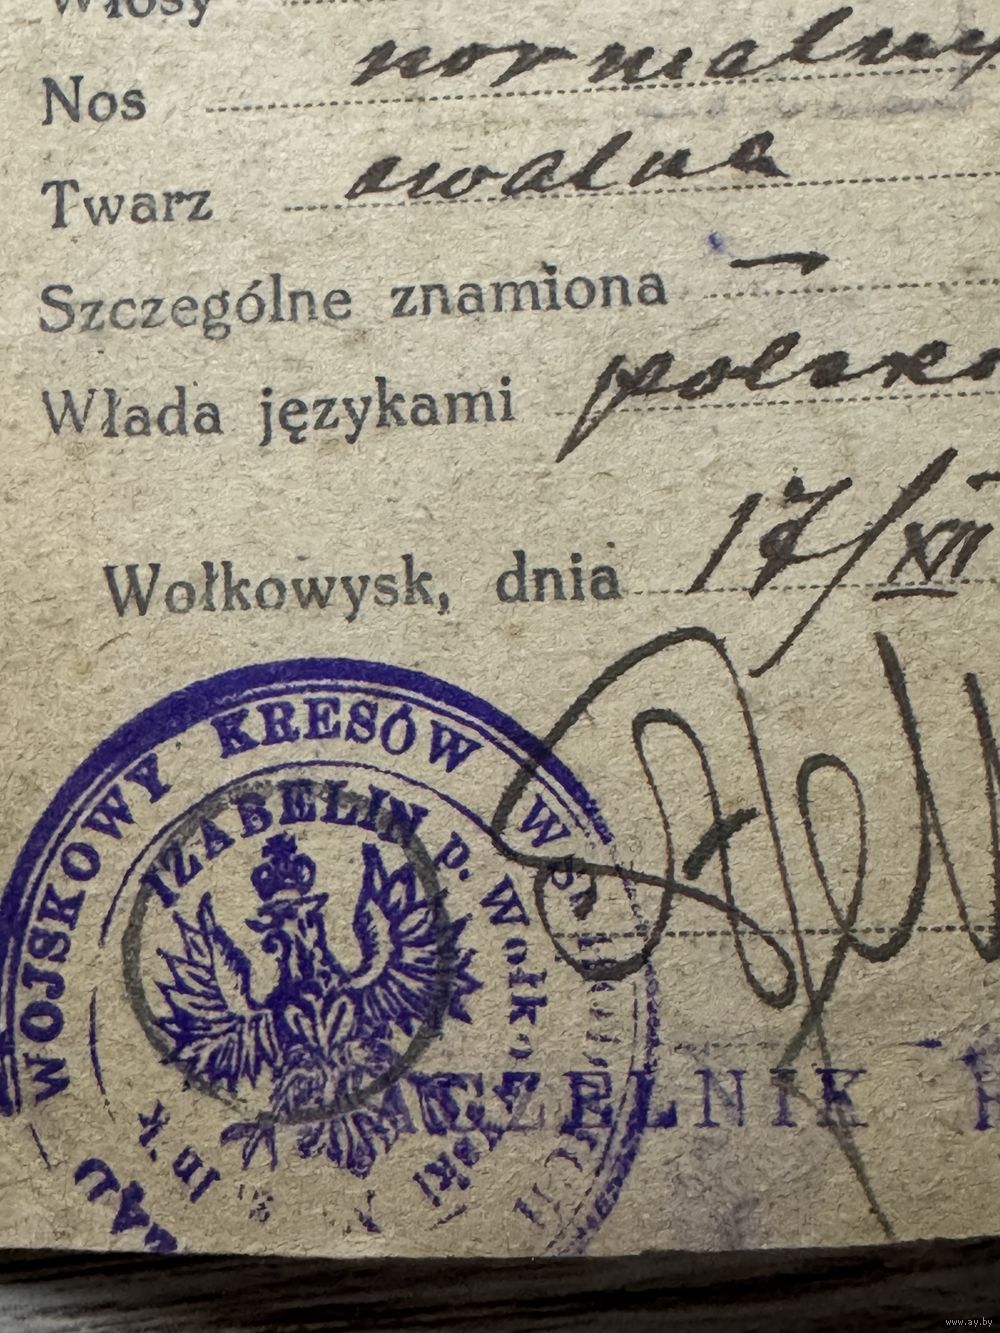 Włosy
Nos normalny
Twarz owalna
Szczególne znamiona —
Włada językami polsk
Wołkowysk, dnia 17/XII
WOJSKOWY KRESÓW WSCH
IZABELIN p. Wołkowyski
NACZELNIK
www.ay.by